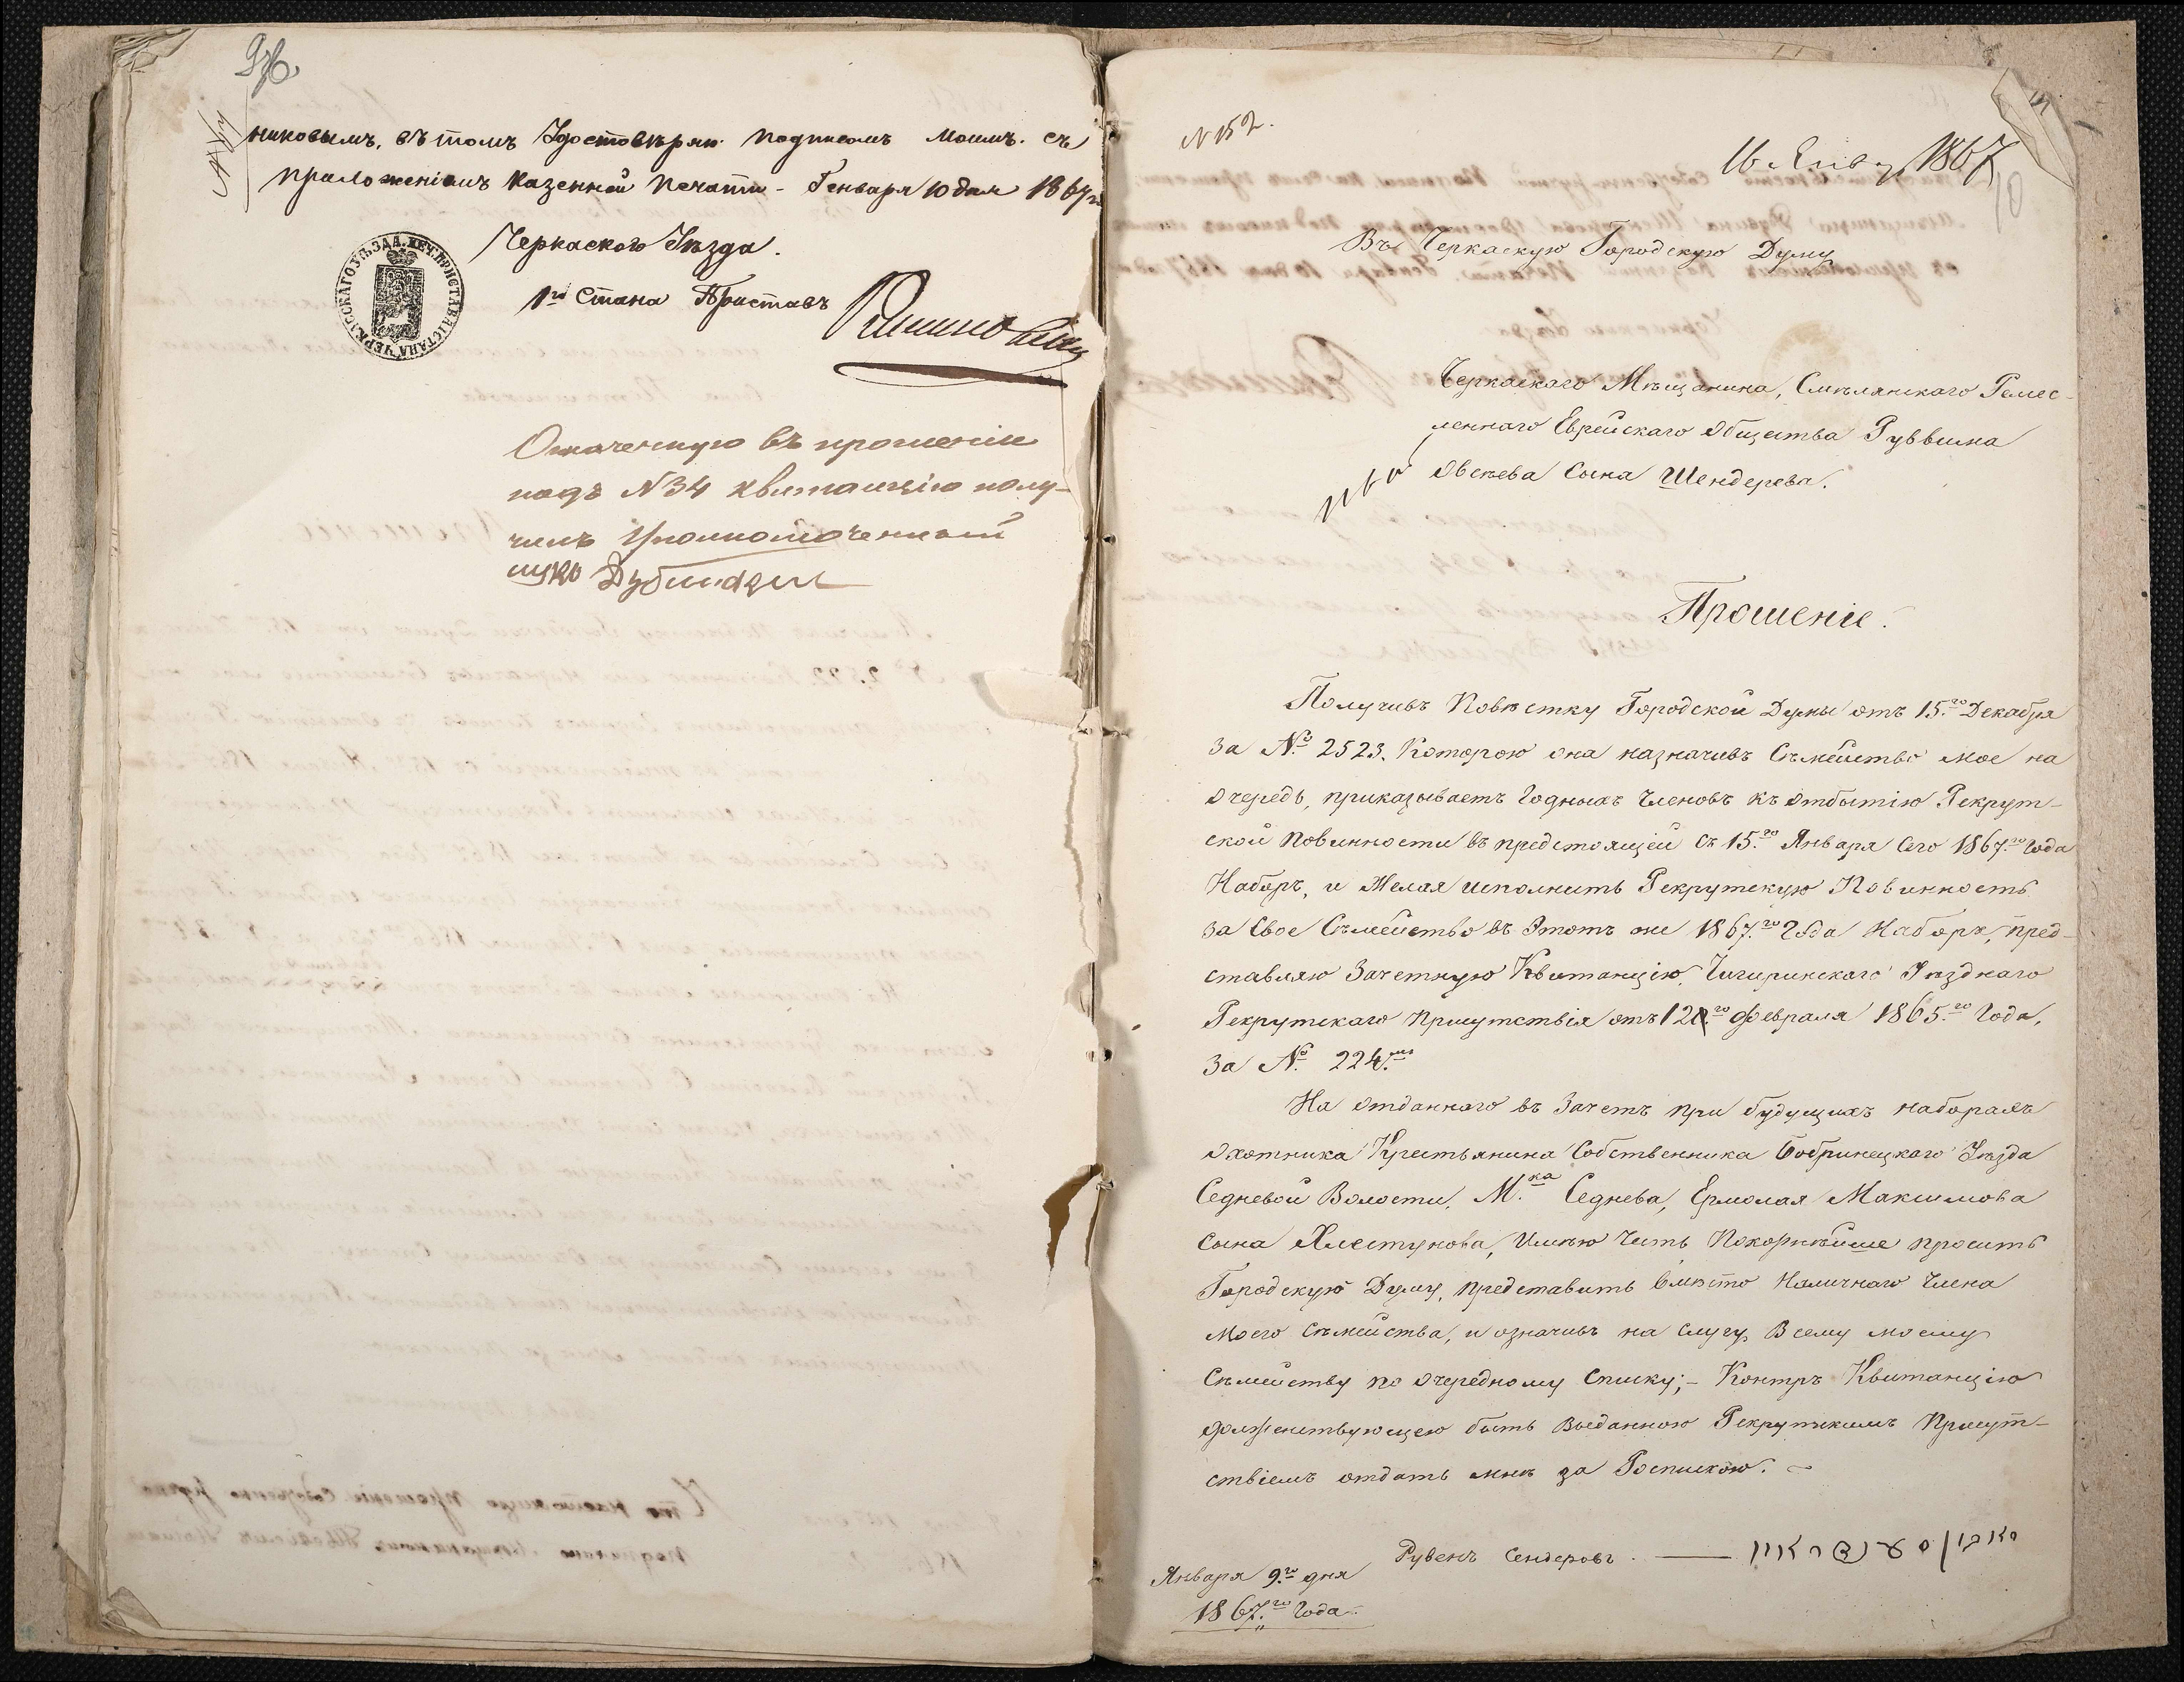 никовымъ, въ томъ Удостовѣряю подписомъ Моимъ съ
приложеніемъ Казенной Печати - Генваря 10 дня 1867 г.
Черкаского Уѣзда
1го Стана Приставъ
Означенную въ прошеніи
подъ N 34 квитанцію полу-
чилъ Уполномоченный
N 152.
16 Янв 1867
10
Въ Черкаскую Городскую Думу
Черкаскаго Мѣщанина, Смѣлянскаго Ремес-
леннаго Еврейскаго Общества Руввина
Овсѣева Сына Шендерова.
Прошеніе.
Получивъ Повѣстку Городской Думы отъ 15.го Декабря
за №. 2523. Которою она назначивъ Съмейство мое на
очередь, приказываетъ Годныхъ Членовъ къ отбытію Рекрут-
ской Повинности въ предстоящей съ 15.го Января Сего 1867.го Года
Наборъ, и Желая исполнить Рекрутскую Повинность
за Свое Съмейство въ Этотъ же 1867.го Года Наборъ, пред-
ставляю Зачетную Квитанцію, Чигиринскаго Уѣзднаго
Рекрутскаго Присутствія отъ 12.го Февраля 1865.го Года,
за №. 224.
На отданнаго въ Зачетъ при будущихъ наборахъ
охотника Крестьянина Собственника Бобринецкаго Уѣзда
Седневой Волости, М.ка Седнева, Ермолая Максимова
Сына Хлестунова, Имѣю Честь Покорнѣйше просить
Городскую Думу, представить Вмѣсто Наличнаго Члена
Моего Съмейства, и означивъ на Слугу Всему моему
Съмейству по очередному Списку; - Контръ Квитанцію
долженствующею быть Выданною Рекрутскимъ Присут-
ствіемъ отдать мнѣ за Роспискою.
Рувенъ Сендеровъ.
Января 9.го дня
1867.го Года.